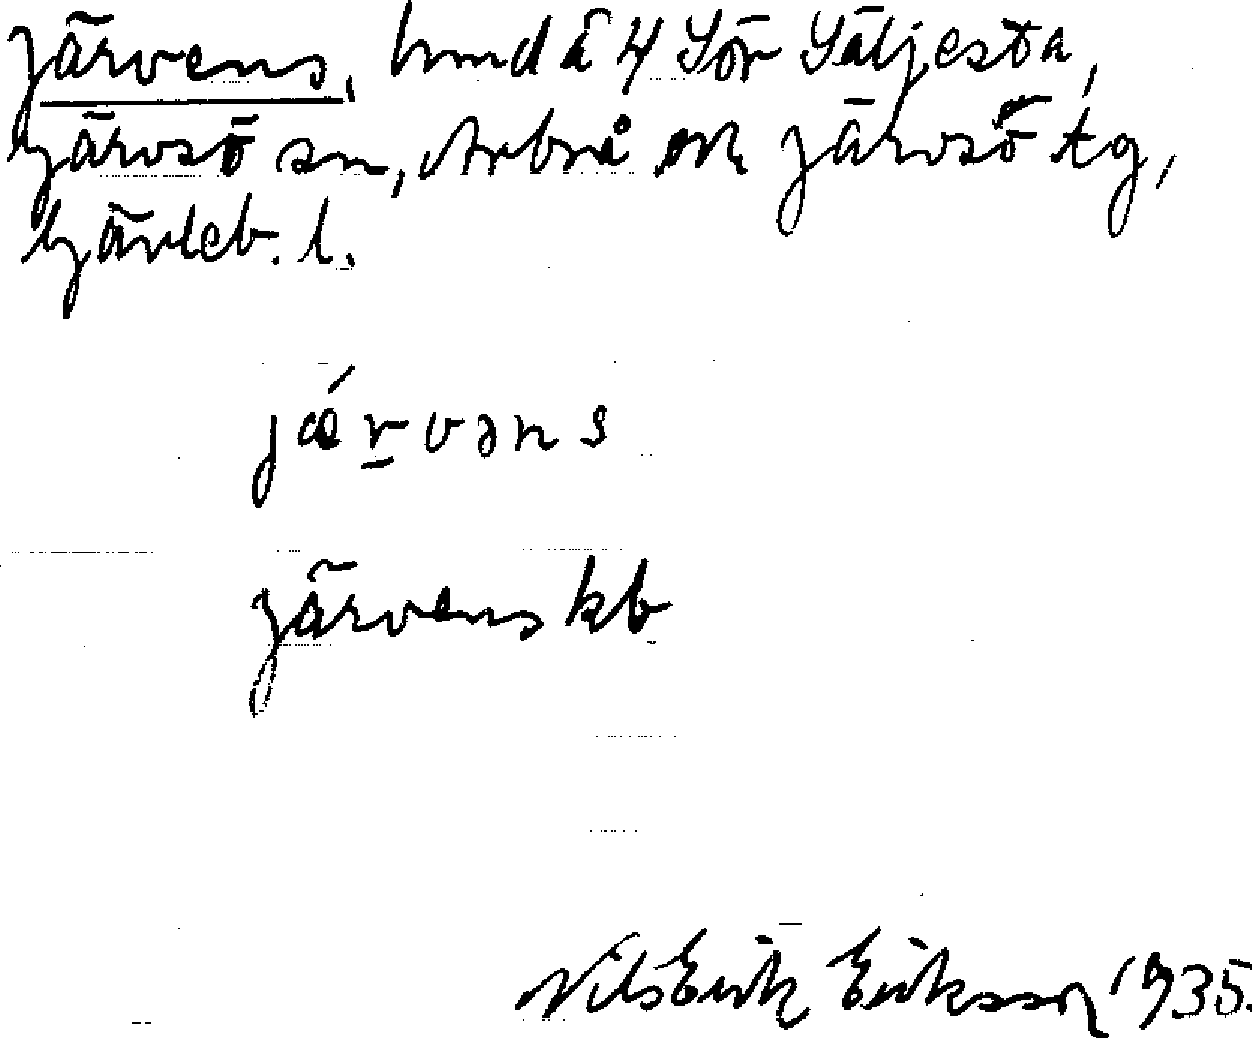 Järvens, hmd å 4 Sör Säljesta,
Järvsö sn, Arbrå ok Järvsö tg,
Gävleb. l.
jǽrvəns
Järvens kb
Nils Erik Eriksson 1935.